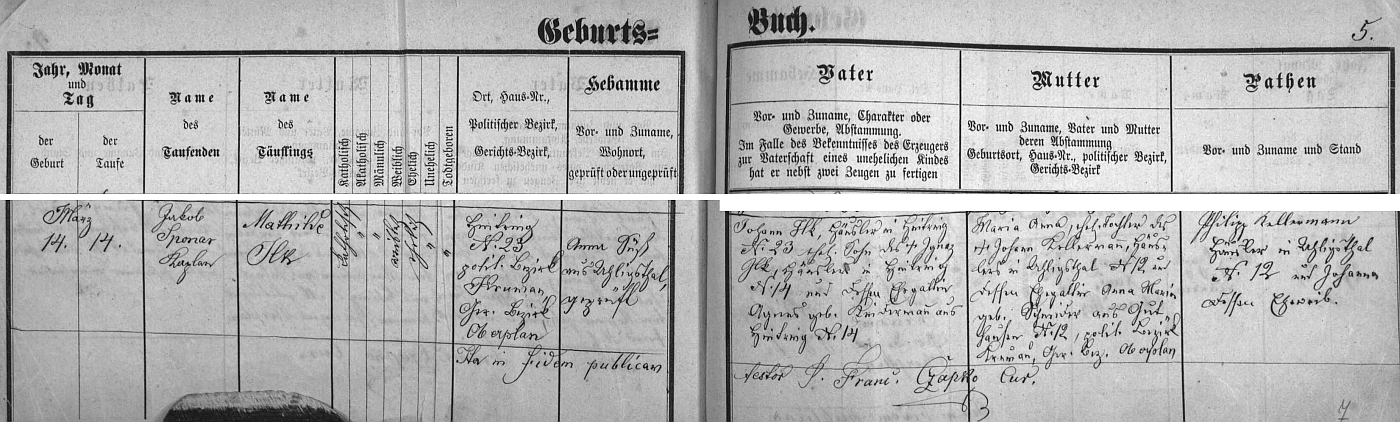 Geburts=
Buch.
5.
Jahr, Monat
und
Tag
der
Geburt
der
Taufe
Name
des
Taufenden
Name
des
Täuflings
Katholisch
Akatholisch
Männlich
Weiblich
Ehelich
Unehelich
Todtgeboren
Ort, Haus-Nr.,
Politischer Bezirk,
Gerichts-Bezirk,
Hebamme
Vor- und Zuname,
Wohnort,
geprüft oder ungeprüft
Vater
Vor- und Zuname, Charakter oder
Gewerbe, Abstammung.
Im Falle des Bekenntnisses des Erzeugers
zur Vaterschaft eines unehelichen Kindes
hat er nebst zwei Zeugen zu fertigen
Mutter
Vor- und Zuname, Vater und Mutter
deren Abstammung
Geburtsort, Haus-Nr., politischer Bezirk,
Gerichts-Bezirk
Pathen
Vor- und Zuname und Stand
März
14. 14.
Jakob
Kaplan
Mathilde
Ilk
katholisch
"
"
weiblich
ehelich
"
"
N. 23
polit. Bezirk
Krumau,
Ger. Bezirk
Oberplan
Anna Süß
aus Uhligsthal,
geprüft
Johann Ilk, Häusler in
N. 23 ehel. Sohn des Ignaz
Ilk, Häusler in
N. 14 und dessen Ehegattin
Agnes geb. aus
N. 14
Maria Anna, ehel. Tochter des
Johann Kellerman, Häus-
lers in Uhligsthal N. 12 und
dessen Ehegattin Anna Maria
geb. Schneider aus Gut-
hausen N. 12, polit. Bezirk
Krumau, Ger. Bez. Oberplan
Philipp Kellermann
Häusler in Uhligsthal
N. 12 und Johanna
dessen Eheweib.
Ita in fidem publicam
testor P. Franc. Czapko Cur.
7